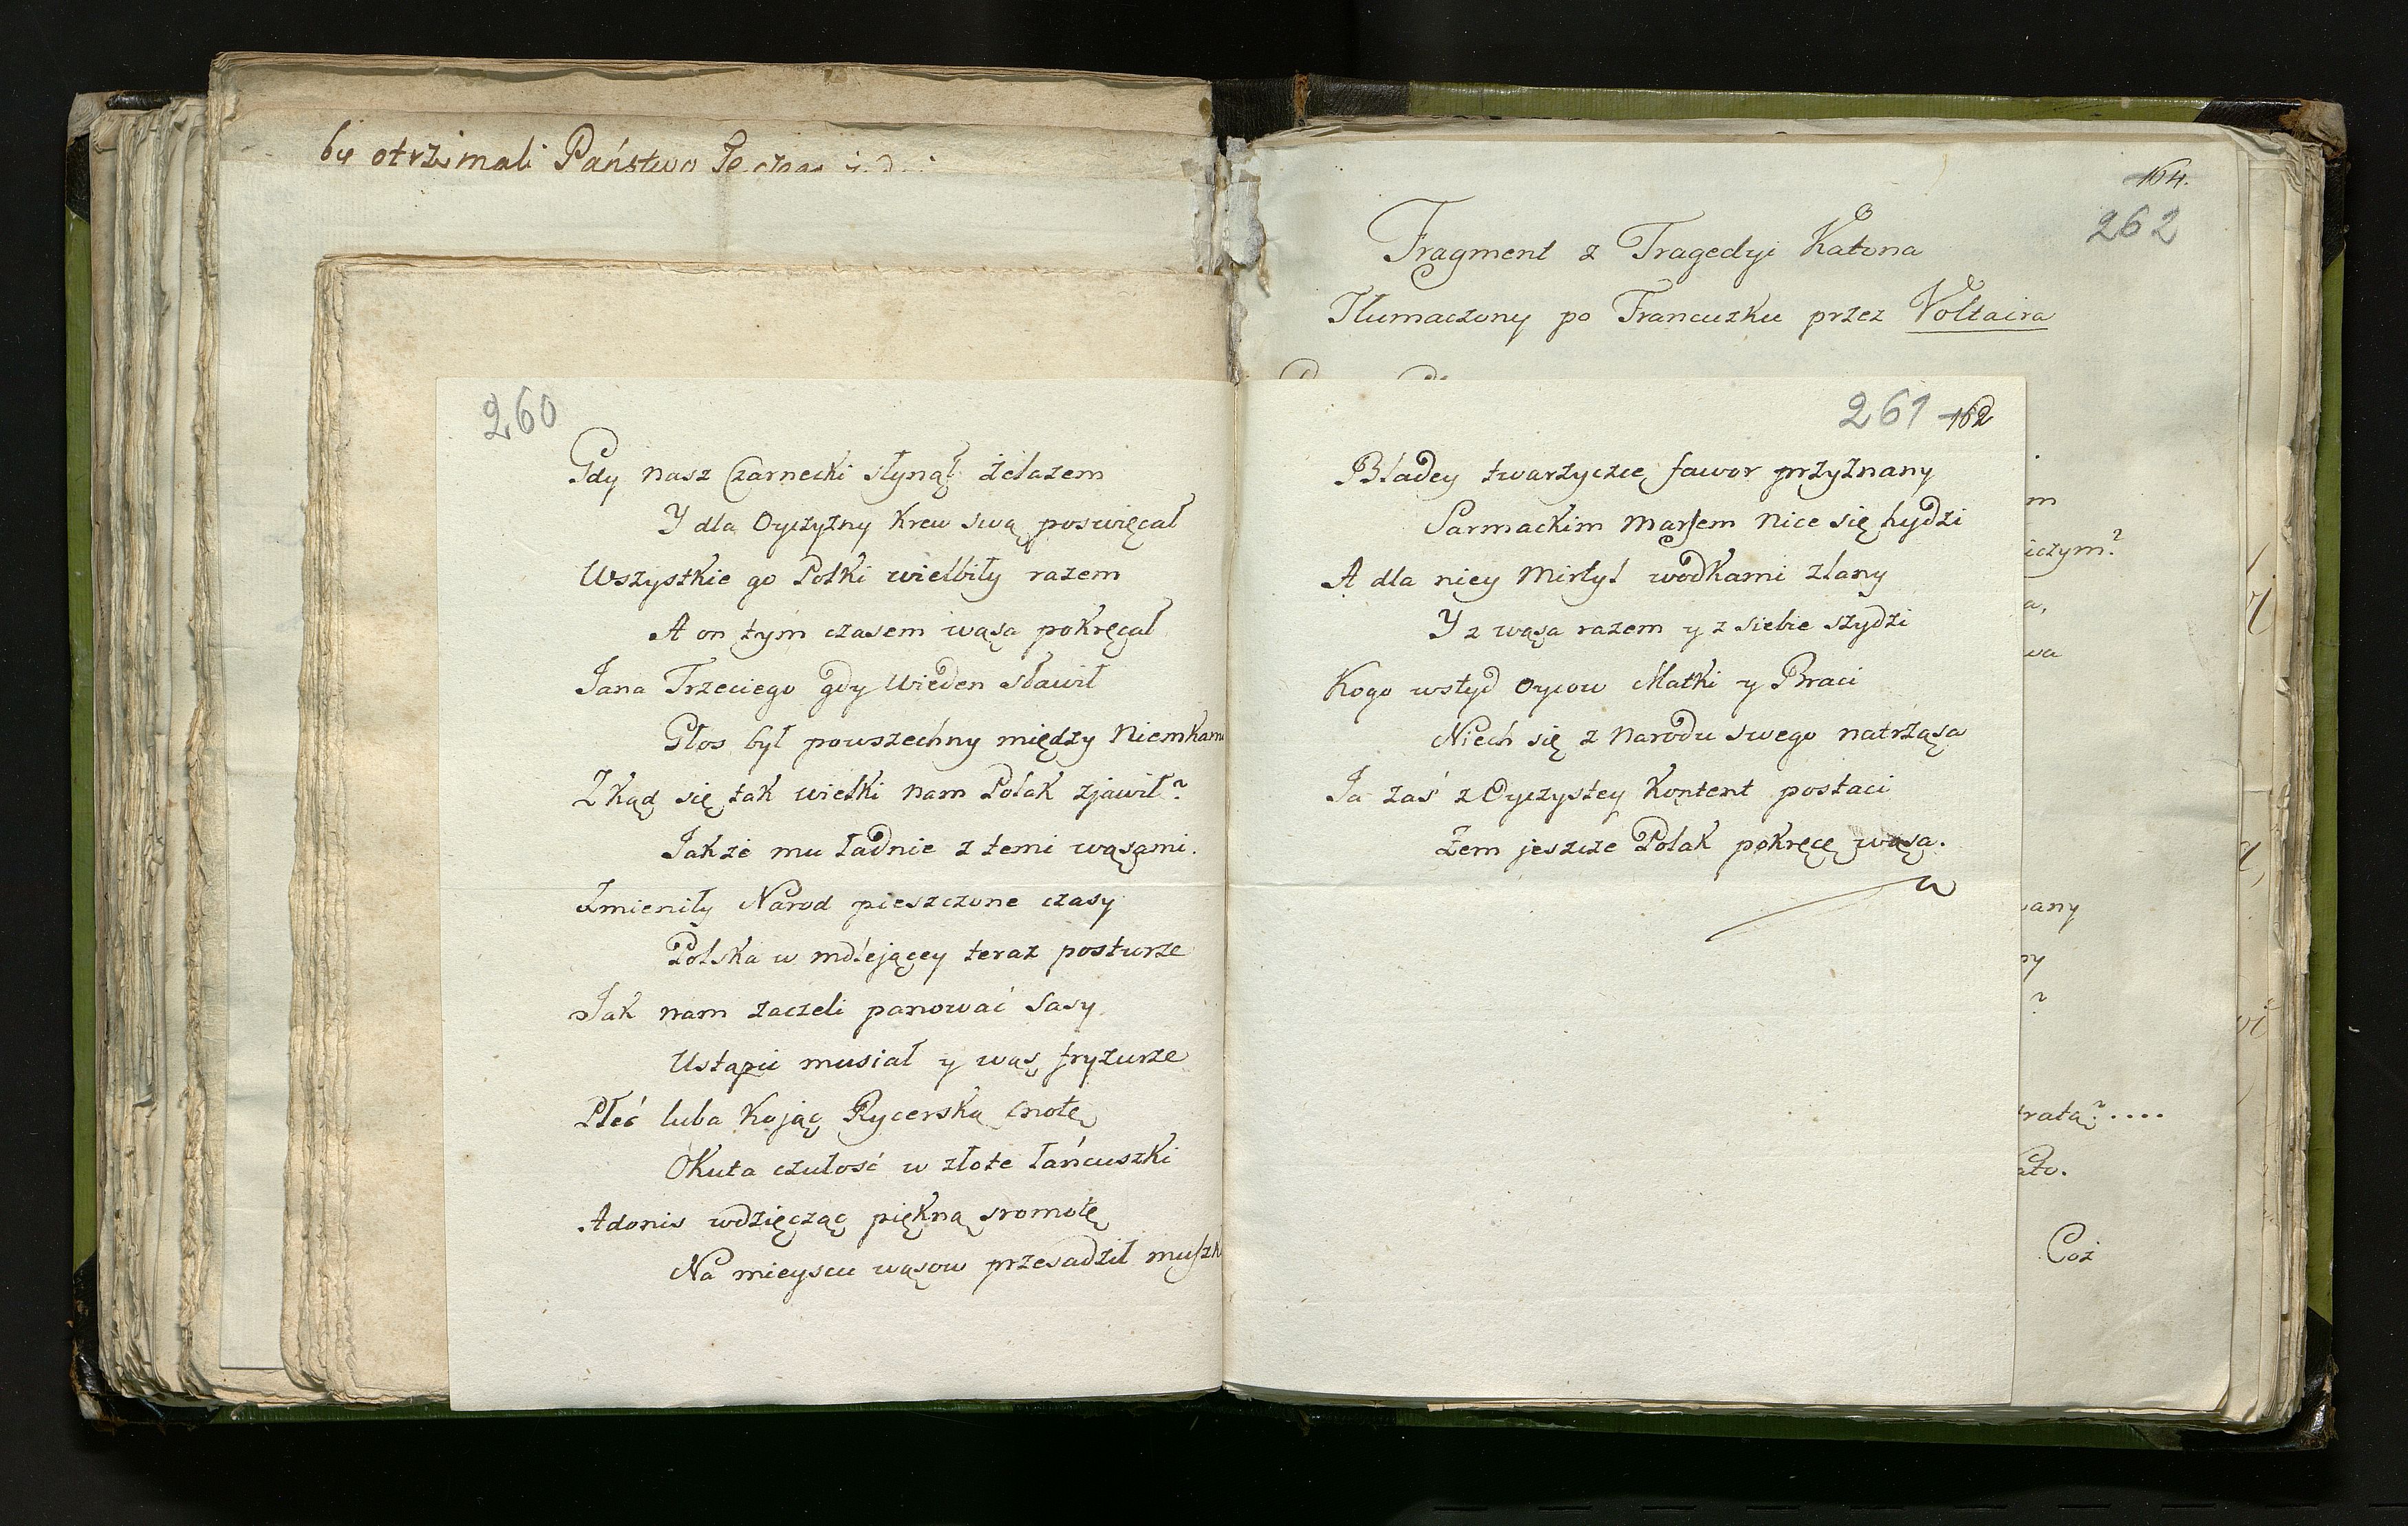 bie otrzimali Państwo
260
Gdy nasz Czarnecki słynął żelazem
Y dla Oyczyzny krew swą poswięcał
Wszystkie go Polki wielbiły razem
A on tym czasem wąsa pokręcał
Jana Trzeciego gdy Wieden sławił
Głos był powszechny między Niemkami
Zkąd się tak wielki nam Polak zjawił?
Jakże mu ładnie z temi wąsami.
Zmieniły Narod pieszczone czasy
Polska w mdlejącey teraz posturze
Jak nam zaczeli panować Sasy
Ustąpić musiał y wąs fryzurze
Płeć luba kojąc Rycerską cnotę
Okuła czułość w złote łańcuszki
Adonis wdzięcząc piękną sromotę
Na mieyscu wąsow przesadził muszk
261 162
Bladey twarzyczce fawor przyznany
Sarmackim marsem Nice się hydzi
A dla niey Mirtyl wodkami zlany
Y z wąsa razem y z siebie szydzi
Kogo wstyd oycow Matki y Braci
Niech się z Narodu swego natrząsa
Ja zaś z Oyczystey kontent postaci
Żem jeszcze Polak pokręcę wąsa.
164.
262
Fragment z Tragedyi Katona
Tłumaczony po Francuzku przez Voltaira
m
iczym?
a,
wa
wany
ny
?
tratą?....
ato.
Coż